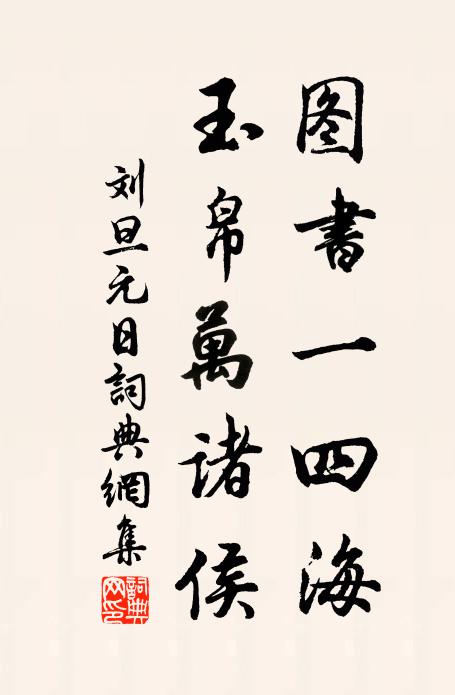 图書一四海
玉帛萬諸侯
刘旦元日詞典網集
詞典網印